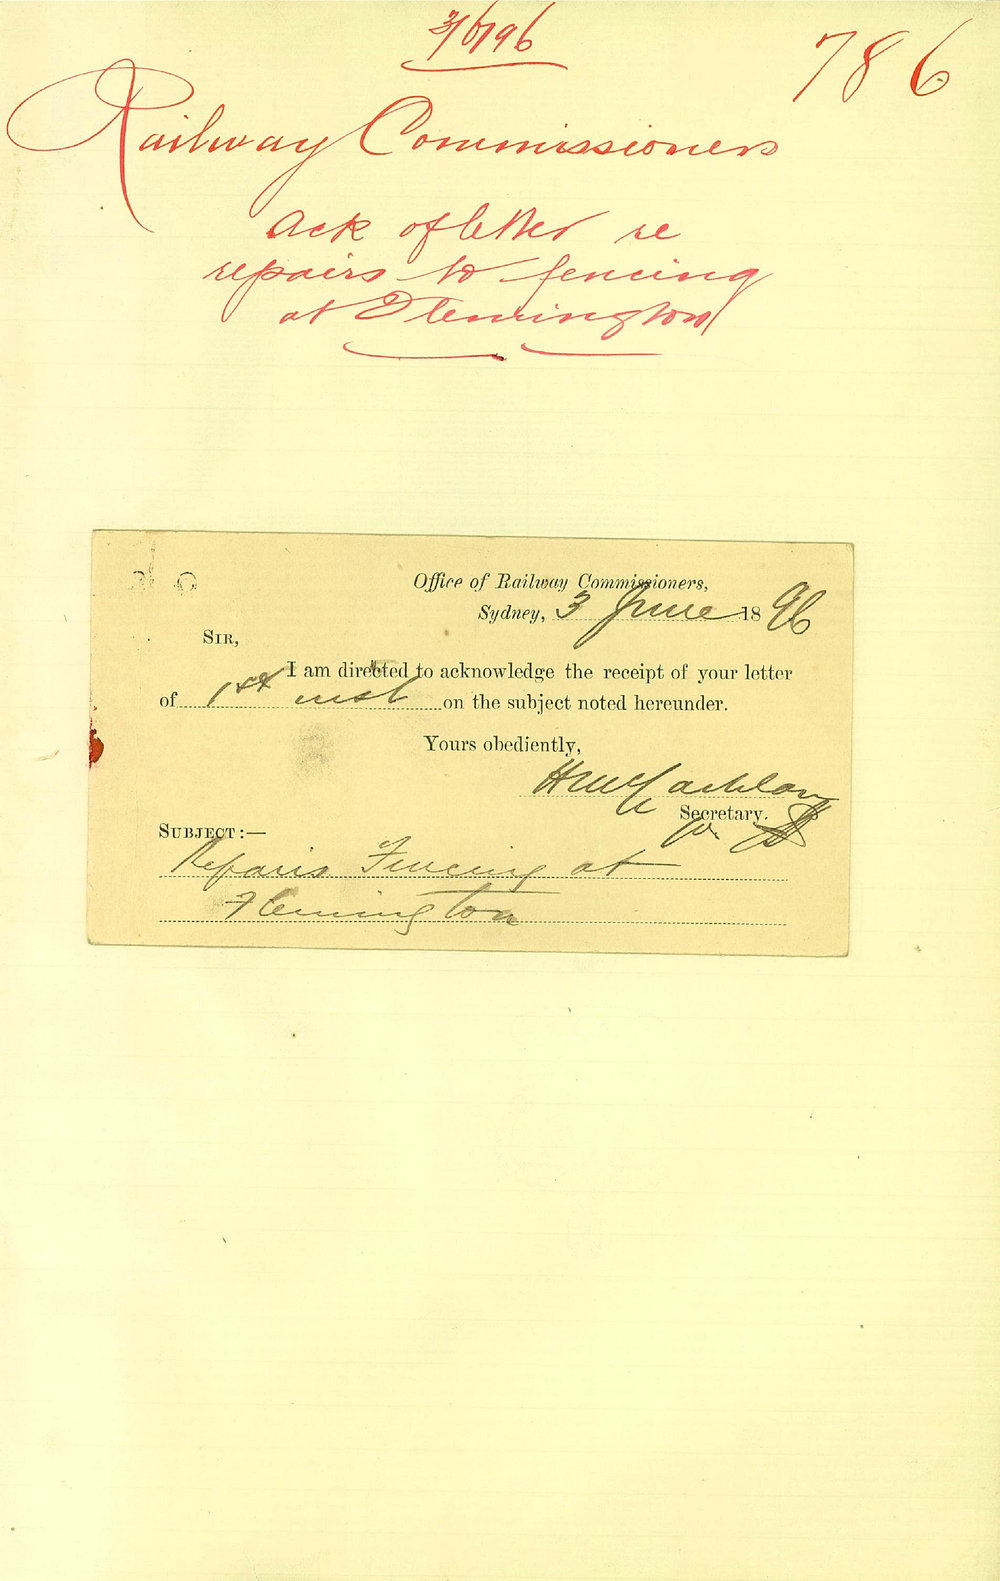 3/6/96
786
Railway Commissioners
Ack of letter re
repairs to fencing
at Flemington
Office of Railway Commissioners,
Sydney, 3 June 1896
SIR,
I am directed to acknowledge the receipt of your letter
of 1st inst on the subject noted hereunder.
Yours obediently,
H McLachlan
Secretary.
SUBJECT:—
Repairs Fencing at
Flemington